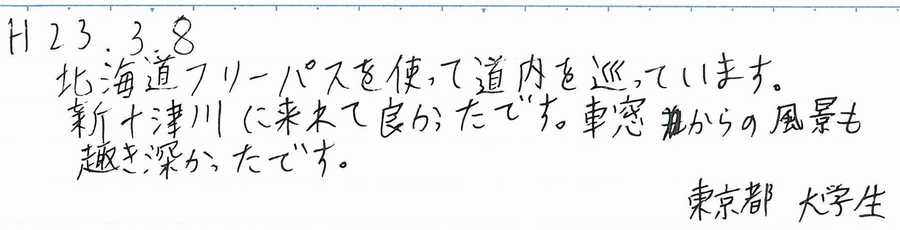 H23.3.8
北海道フリーパスを使って道内を巡っています。
新十津川に来れて良かったです。車窓からの風景も
趣き深かったです。
東京都 大学生